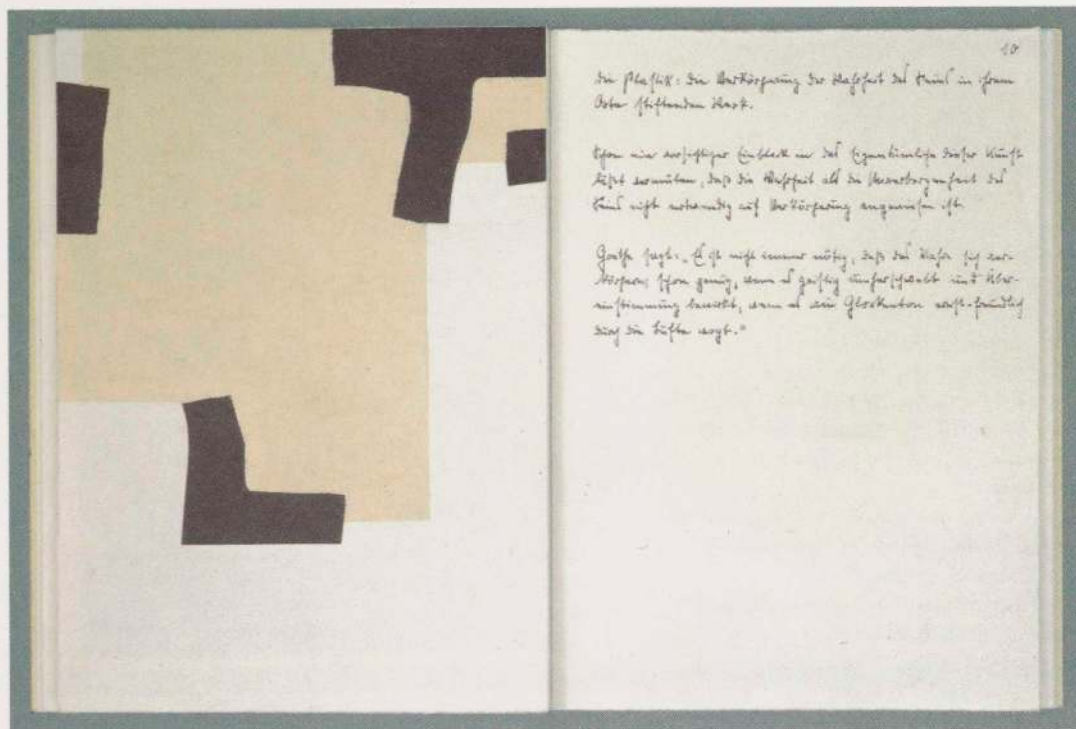 10
Die Plastik: die Verkörperung der Wahrheit des Seins in ihrem
Orte stiftenden Werk.
Schon ein vorsichtiger Einblick in das Eigentümliche dieser Kunst
läßt vermuten, daß die Wahrheit als die Unverborgenheit des
Seins nicht notwendig auf Verkörperung angewiesen ist.
Goethe sagt: „Es ist nicht immer nötig, daß das Wahre sich ver-
körpere; schon genug, wenn es geistig umherschwebt und Über-
einstimmung bewirkt; wenn es wie Glockenton ernst-freundlich
durch die Lüfte wogt.“